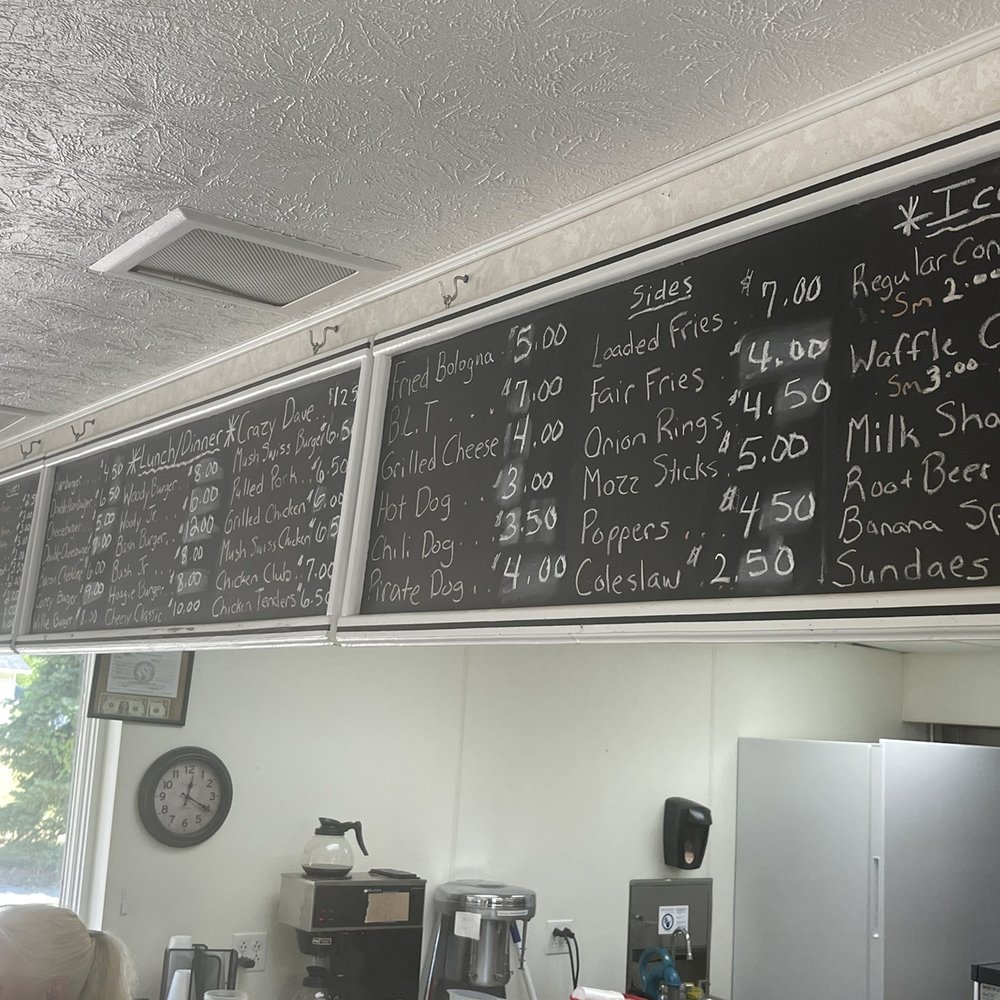 Sides
*Lunch/Dinner*
Hamburger. $4.50
Double Hamburger $6.50
Cheeseburger $5.00
Double Cheeseburger
Willie Burger $8.00
Woody Burger. $8.00
Woody Jr. $6.00
Bash Burger. $12.00
Bash Jr. $8.00
Hoagie Burger. $8.00
Cheery Classic $10.00
Crazy Dave.. $12.5
Mush Swiss Burger $6.5
Pulled Pork. $6.50
Grilled Chicken $6.00
Mush Swiss Chicken $6.5
Chicken Club. $7.00
Chicken Tenders $6.50
Fried Bologna. $5.00
B.L.T.... $7.00
Grilled Cheese $4.00
Hot Dog... $3.00
Chili Dog.. $3.50
Pirate Dog.. $4.00
Sides
Loaded Fries. $7.00
Fair Fries $4.00
Onion Rings $4.50
Mozz Sticks. $5.00
Poppers... $4.50
Coleslaw $2.50
*Ic
Regular Con
Sm 2.00
Waffle C
Sm 3.00
Milk Sha
Root Beer
Banana Sp
Sundaes
12 1 2 3 4 5 6 7 8 9 10 11
BUNN